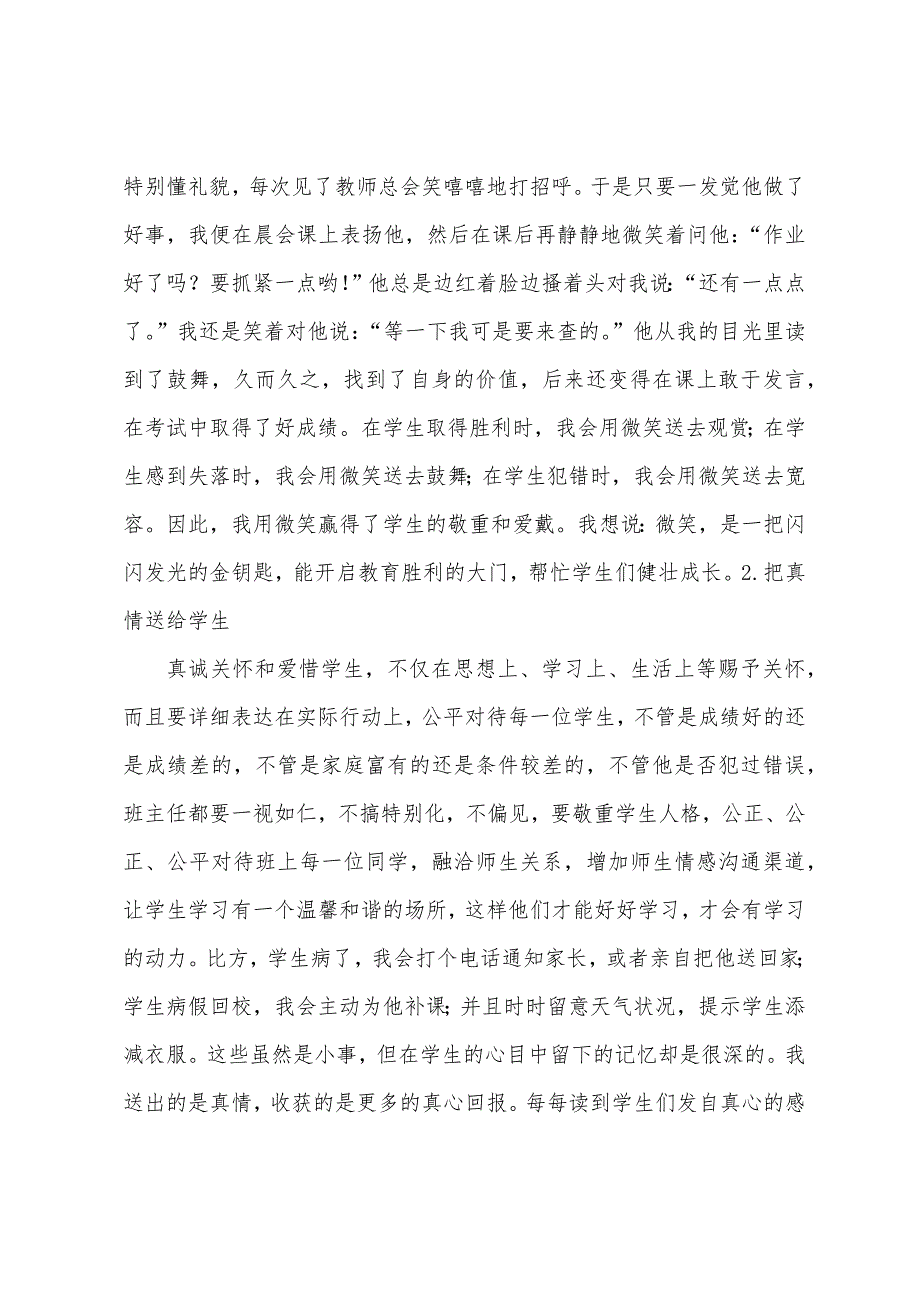 特别懂礼貌，每次见了教师总会笑嘻嘻地打招呼。于是只要一发觉他做了
好事，我便在晨会课上表扬他，然后在课后再静静地微笑着问他：“作业
好了吗？要抓紧一点哟！”他总是边红着脸边搔着头对我说：“还有一点点
了。”我还是笑着对他说：“等一下我可是要来查的。”他从我的目光里读
到了鼓舞，久而久之，找到了自身的价值，后来还变得在课上敢于发言，
在考试中取得了好成绩。在学生取得胜利时，我会用微笑送去观赏；在学
生感到失落时，我会用微笑送去鼓舞；在学生犯错时，我会用微笑送去宽
容。因此，我用微笑赢得了学生的敬重和爱戴。我想说：微笑，是一把闪
闪发光的金钥匙，能开启教育胜利的大门，帮忙学生们健壮成长。2.把真
情送给学生
真诚关怀和爱惜学生，不仅在思想上、学习上、生活上等赐予关怀，
而且要详细表达在实际行动上，公平对待每一位学生，不管是成绩好的还
是成绩差的，不管是家庭富有的还是条件较差的，不管他是否犯过错误，
班主任都要一视如仁，不搞特别化，不偏见，要敬重学生人格，公正、公
正、公平对待班上每一位同学，融洽师生关系，增加师生情感沟通渠道，
让学生学习有一个温馨和谐的场所，这样他们才能好好学习，才会有学习
的动力。比方，学生病了，我会打个电话通知家长，或者亲自把他送回家；
学生病假回校，我会主动为他补课；并且时时留意天气状况，提示学生添
减衣服。这些虽然是小事，但在学生的心目中留下的记忆却是很深的。我
送出的是真情，收获的是更多的真心回报。每每读到学生们发自真心的感